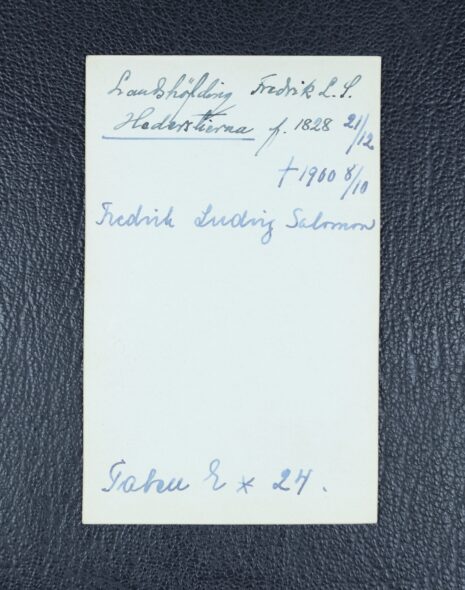 Landshöfding Fredrik L. S.
Hederstierna f. 1828 21/12
† 1900 8/10
Fredrik Ludvig Salomon
Tabell 2 * 24.